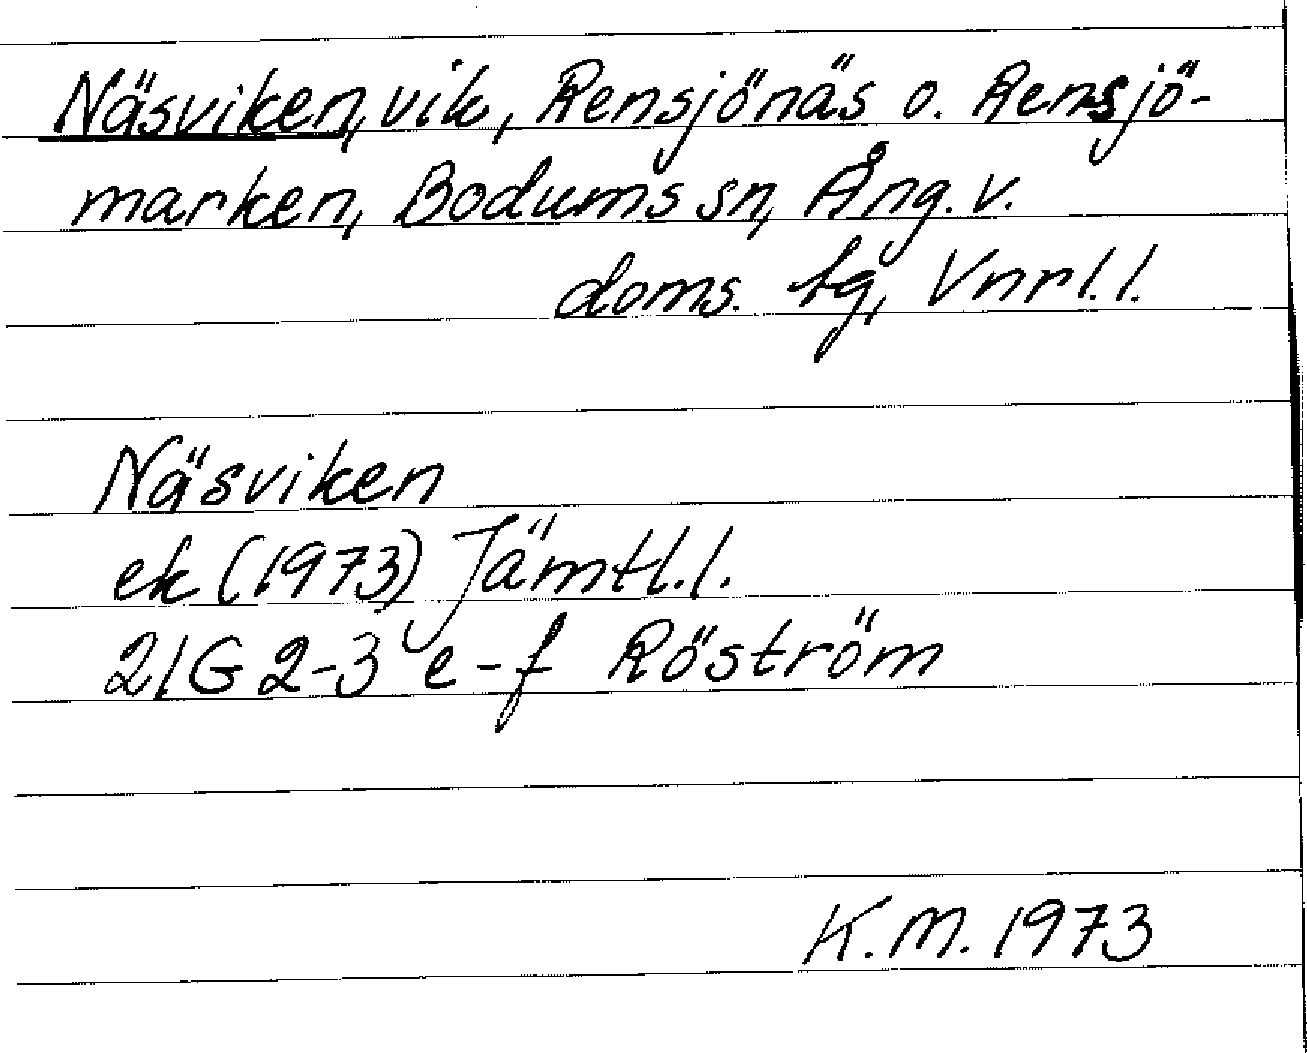 Näsviken, vik, Rensjönäs o. Rensjö-
marken, Bodums sn, Ång. v.
doms. tg, Vnrl. l.
Näsviken
ek (1973) Jämtl. l.
21G 2-3 e-f Röström
K. M. 1973